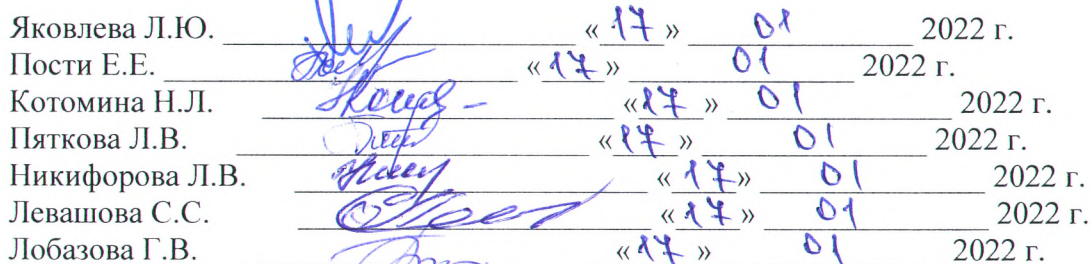 Яковлева Л.Ю. «17» 01 2022 г.
Пости Е.Е. «17» 01 2022 г.
Котомина Н.Л. «17» 01 2022 г.
Пяткова Л.В. «17» 01 2022 г.
Никифорова Л.В. «17» 01 2022 г.
Левашова С.С. «17» 01 2022 г.
Лобазова Г.В. «17» 01 2022 г.